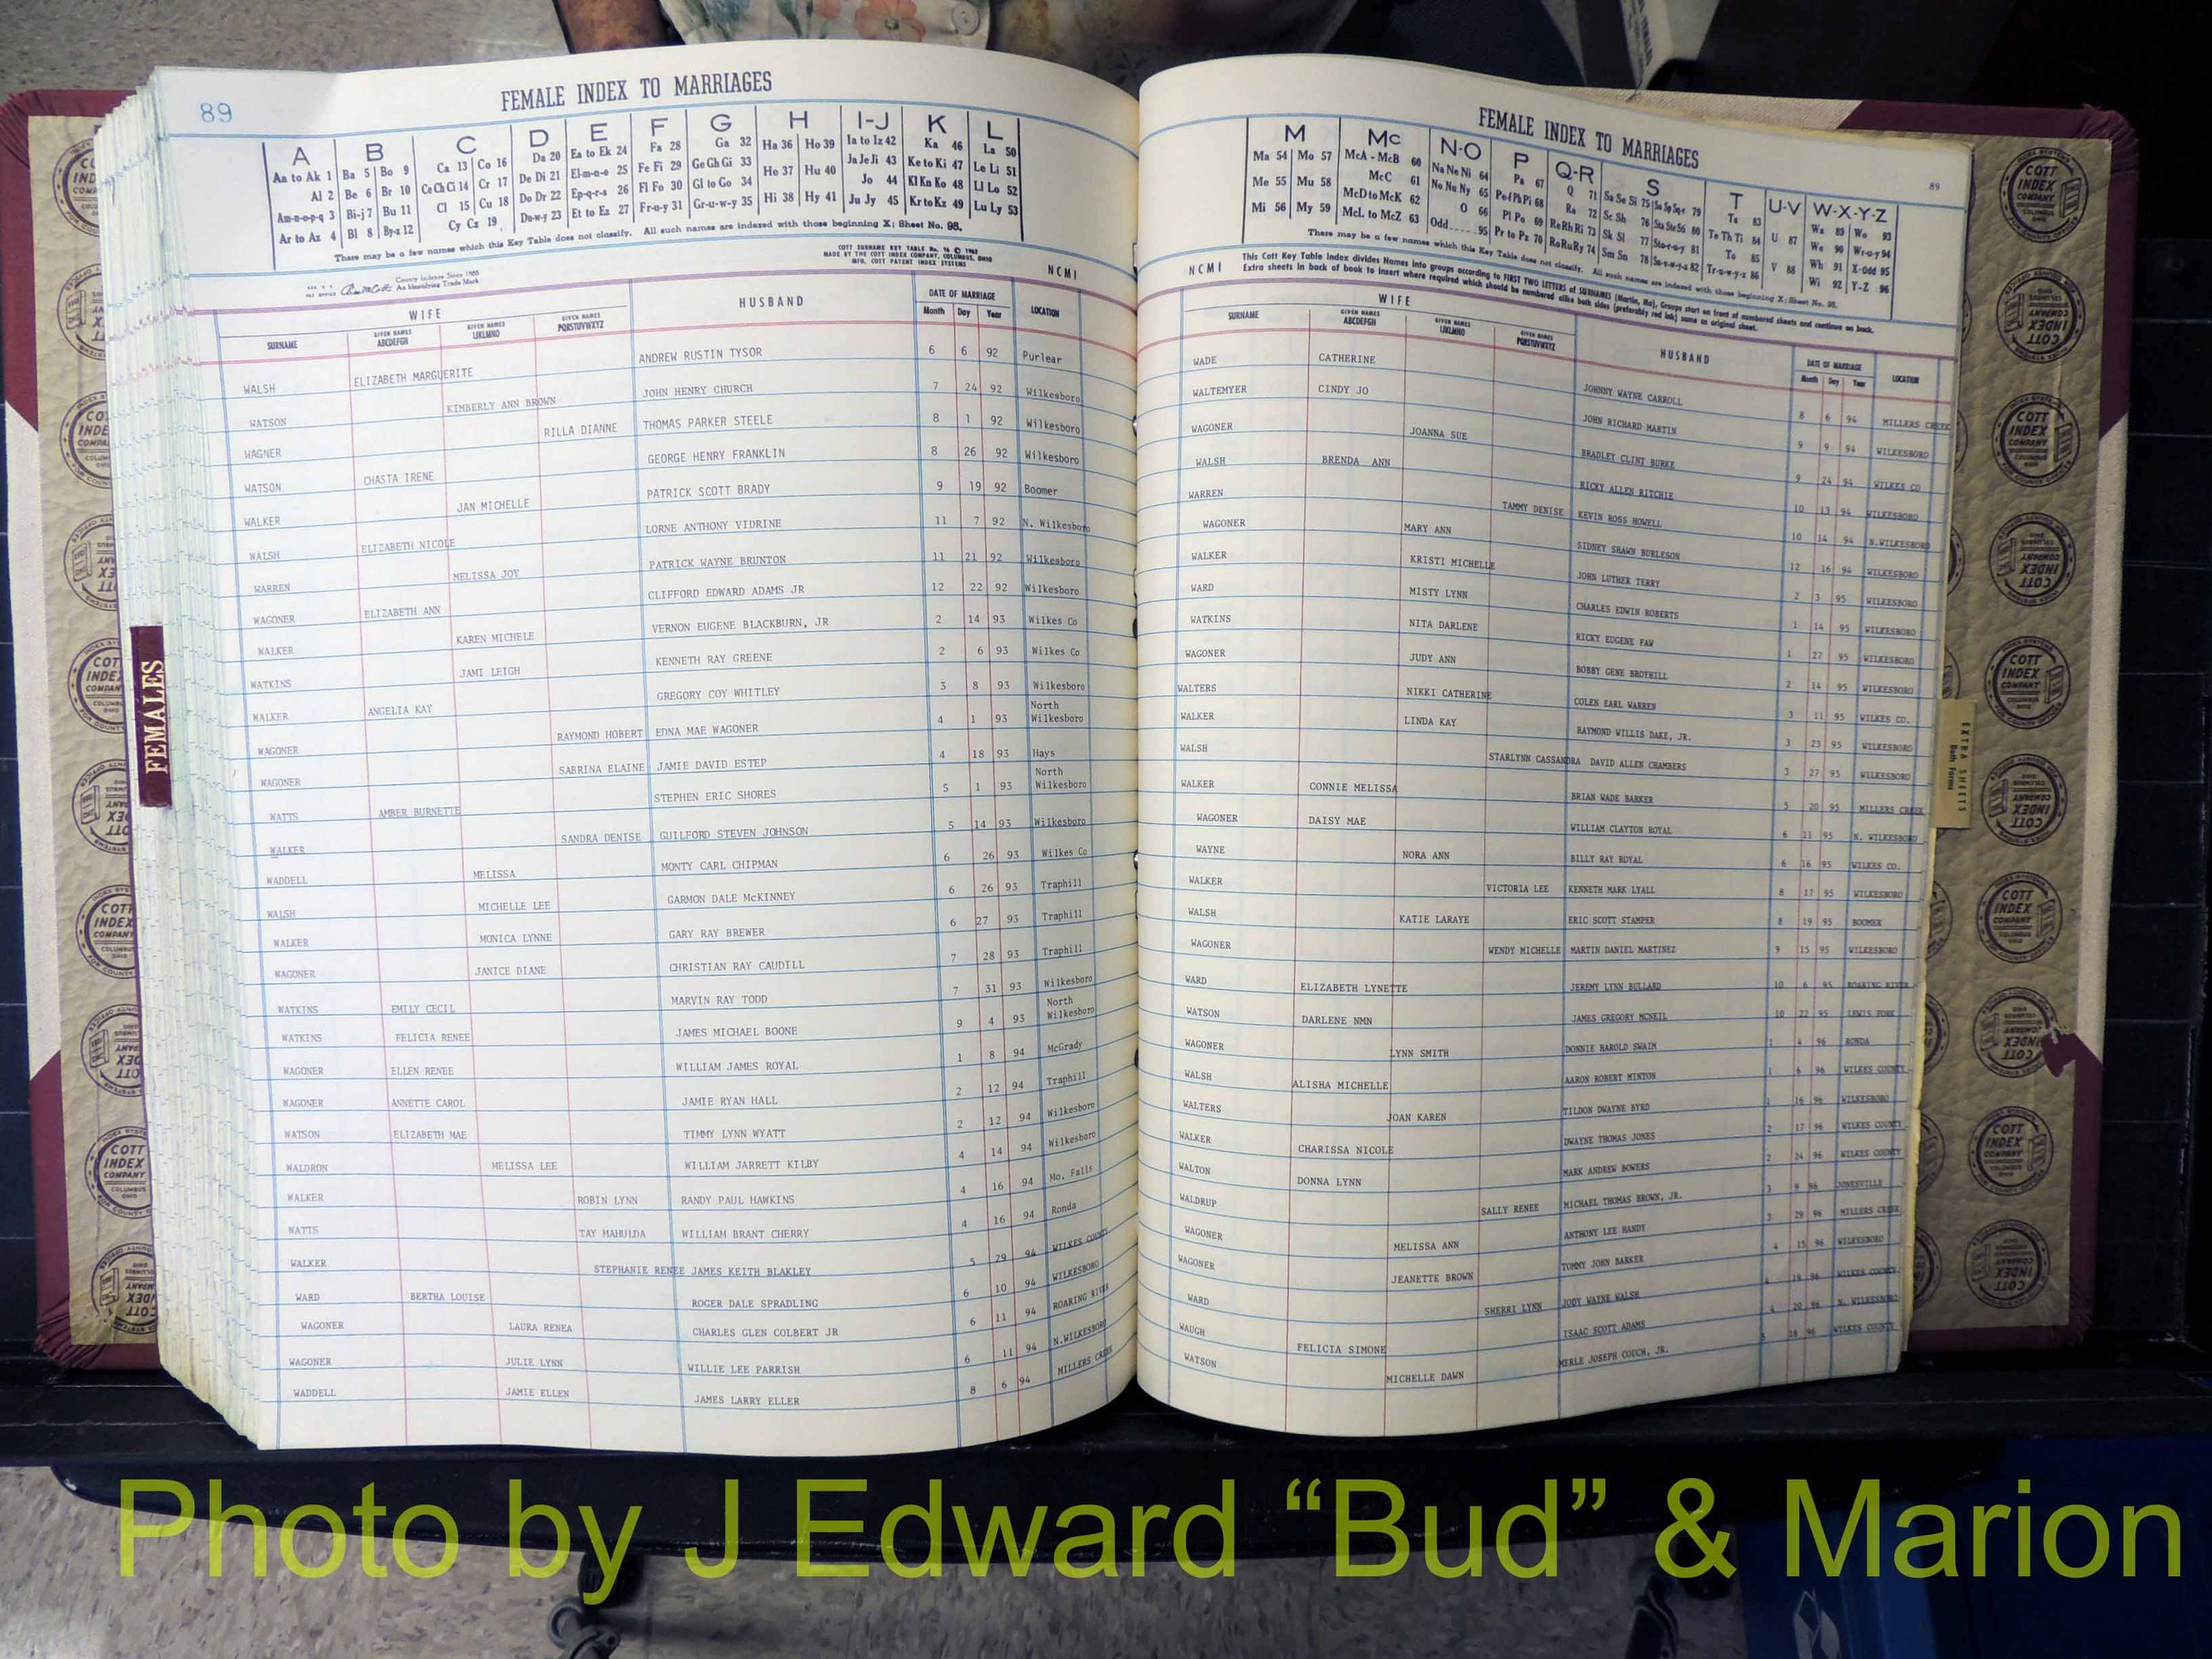 89
FEMALE INDEX TO MARRIAGES
A B C D E F G H I-J K L
Aa to Ak 1 Ba 5 Bo 9 Ca 13 Co 16 Da 20 Ea to Ek 24 Fa 28 Ga 32 Ha 36 Ho 39 Ia to Iz 42 Ka 46 La 50
Al 2 Be 6 Br 10 Ce Ch Ci 14 Cr 17 De Di 21 El-m-n-o 25 Fe Fi 29 Ge Gh Gi 33 He 37 Hu 40 Ja Je Ji 43 Ke to Ki 47 Le Li 51
Am-n-o-p-q 3 Bi-j 7 Bu 11 Cl 15 Cu 18 Do Dr 22 Ep-q-r-s 26 Fl Fo 30 Gl to Go 34 Hi 38 Hy 41 Jo 44 Kl Kn Ko 48 Ll Lo 52
Ar to Az 4 Bl 8 By-z 12 Cy Cz 19 Du-w-y 23 Et to Ez 27 Fr-u-y 31 Gr-u-w-y 35 Ju Jy 45 Kr to Kz 49 Lu Ly 53
There may be a few names which this Key Table does not classify. All such names are indexed with those beginning X; Sheet No. 95.
COTT SURNAME KEY TABLE
MADE BY THE COTT INDEX COMPANY, COLUMBUS, OHIO
MFG. COTT PATENT INDEX SYSTEMS
NCMI
County Indexes Since 1888
An Identifying Trade Mark
WIFE HUSBAND DATE OF MARRIAGE LOCATION
SURNAME GIVEN NAMES ABCDEFGH GIVEN NAMES IJKLMNO GIVEN NAMES PQRSTUVWXYZ Month Day Year
WALSH ELIZABETH MARGUERITE ANDREW RUSTIN TYSOR 6 6 92 Purlear
WATSON KIMBERLY ANN BROWN JOHN HENRY CHURCH 7 24 92 Wilkesboro
WAGNER RILLA DIANNE THOMAS PARKER STEELE 8 1 92 Wilkesboro
WATSON CHASTA IRENE GEORGE HENRY FRANKLIN 8 26 92 Wilkesboro
WALKER JAN MICHELLE PATRICK SCOTT BRADY 9 19 92 Boomer
WALSH ELIZABETH NICOLE LORNE ANTHONY VIDRINE 11 7 92 N. Wilkesboro
WARREN MELISSA JOY PATRICK WAYNE BRUNTON 11 21 92 Wilkesboro
WAGONER ELIZABETH ANN CLIFFORD EDWARD ADAMS JR 12 22 92 Wilkesboro
WALKER KAREN MICHELE VERNON EUGENE BLACKBURN, JR 2 14 93 Wilkes Co
WATKINS JAMI LEIGH KENNETH RAY GREENE 2 6 93 Wilkes Co
WALKER ANGELIA KAY GREGORY COY WHITLEY 3 8 93 Wilkesboro
WAGONER RAYMOND HOBERT EDNA MAE WAGONER 4 1 93 North Wilkesboro
WAGONER SABRINA ELAINE JAMIE DAVID ESTEP 4 18 93 Hays
WATTS AMBER BURNETTE STEPHEN ERIC SHORES 5 1 93 North Wilkesboro
WALKER SANDRA DENISE GUILFORD STEVEN JOHNSON 5 14 93 Wilkesboro
WADDELL MELISSA MONTY CARL CHIPMAN 6 26 93 Wilkes Co
WALSH MICHELLE LEE GARMON DALE McKINNEY 6 26 93 Traphill
WALKER MONICA LYNNE GARY RAY BREWER 6 27 93 Traphill
WAGONER JANICE DIANE CHRISTIAN RAY CAUDILL 7 28 93 Traphill
WATKINS EMILY CECIL MARVIN RAY TODD 7 31 93 Wilkesboro
WATKINS FELICIA RENEE JAMES MICHAEL BOONE 9 4 93 North Wilkesboro
WAGONER ELLEN RENEE WILLIAM JAMES ROYAL 1 8 94 McGrady
WAGONER ANNETTE CAROL JAMIE RYAN HALL 2 12 94 Traphill
WATSON ELIZABETH MAE TIMMY LYNN WYATT 2 12 94 Wilkesboro
WALDRON MELISSA LEE WILLIAM JARRETT KILBY 4 14 94 Wilkesboro
WALKER ROBIN LYNN RANDY PAUL HAWKINS 4 16 94 Mo. Falls
WATTS TAY MAHULDA WILLIAM BRANT CHERRY 4 16 94 Ronda
WALKER STEPHANIE RENEE JAMES KEITH BLAKLEY 5 29 94 WILKES COUNTY
WARD BERTHA LOUISE ROGER DALE SPRADLING 6 10 94 WILKESBORO
WAGONER LAURA RENEA CHARLES GLEN COLBERT JR 6 11 94 ROARING RIVER
WAGONER JULIE LYNN WILLIE LEE PARRISH 6 11 94 N.WILKESBORO
WADDELL JAMIE ELLEN JAMES LARRY ELLER 8 6 94 MILLERS CREEK
FEMALES
FEMALE INDEX TO MARRIAGES
89
M Mc N-O P Q-R S T U-V W-X-Y-Z
Ma 54 Mo 57 McA - McB 60 Na Ne Ni 64 Pa 67 Q 71 Sa Se Si 75 Ta 83 Wa 89 Wo 93
Me 55 Mu 58 McC 61 No Nu Ny 65 Pe-f Ph Pi 68 Ra 72 Sc Sh 76 Te Th Ti 84 U 87 We 90 Wr-u-y 94
Mi 56 My 59 McD to McK 62 O 66 Pl Po 69 Re Rh Ri 73 Sk Sl 77 To 85 Wh 91 X-Odd 95
McL to McZ 63 Odd 95 Pr to Pz 70 Ro Ru Ry 74 Sm Sn 78 Tr-u-w-y-z 86 V 88 Wi 92 Y-Z 96
There may be a few names which this Key Table does not classify. All such names are indexed with those beginning X; Sheet No. 95.
NCMI
This Cott Key Table Index divides Names into groups according to FIRST TWO LETTERS of SURNAMES (Martin, Ma), Groups start on front of numbered sheets and continue on back.
Extra sheets in back of book to insert where required which should be numbered alike both sides (preferably red ink) same as original sheet.
WIFE HUSBAND DATE OF MARRIAGE LOCATION
SURNAME GIVEN NAMES ABCDEFGH GIVEN NAMES IJKLMNO GIVEN NAMES PQRSTUVWXYZ Month Day Year
WADE CATHERINE JOHNNY WAYNE CARROLL 8 6 94 MILLERS CREEK
WALTEMYER CINDY JO JOHN RICHARD MARTIN 9 9 94 WILKESBORO
WAGONER JOANNA SUE BRADLEY CLINT BURKE 9 24 94 WILKES CO
WALSH BRENDA ANN RICKY ALLEN RITCHIE 10 13 94 WILKESBORO
WARREN TAMMY DENISE KEVIN ROSS HOWELL 10 14 94 N.WILKESBORO
WAGONER MARY ANN SIDNEY SHAWN BURLESON 12 16 94 WILKESBORO
WALKER KRISTI MICHELLE JOHN LUTHER TERRY 2 3 95 WILKESBORO
WARD MISTY LYNN CHARLES EDWIN ROBERTS 1 14 95 WILKESBORO
WATKINS NITA DARLENE RICKY EUGENE FAW 1 27 95 WILKESBORO
WAGONER JUDY ANN BOBBY GENE BROYHILL 2 14 95 WILKESBORO
WALTERS NIKKI CATHERINE COLEN EARL WARREN 3 11 95 WILKES CO.
WALKER LINDA KAY RAYMOND WILLIS DAKE, JR. 3 23 95 WILKESBORO
WALSH STARLYNN CASSANDRA DAVID ALLEN CHAMBERS 3 27 95 WILKESBORO
WALKER CONNIE MELISSA BRIAN WADE BARKER 5 20 95 MILLERS CREEK
WAGONER DAISY MAE WILLIAM CLAYTON ROYAL 6 11 95 N. WILKESBORO
WAYNE NORA ANN BILLY RAY ROYAL 6 16 95 WILKES CO.
WALKER VICTORIA LEE KENNETH MARK LYALL 8 17 95 WILKESBORO
WALSH KATIE LARAYE ERIC SCOTT STAMPER 8 19 95 BOOMER
WAGONER WENDY MICHELLE MARTIN DANIEL MARTINEZ 9 15 95 WILKESBORO
WARD ELIZABETH LYNETTE JEREMY LYNN BULLARD 10 6 95 ROARING RIVER
WATSON DARLENE NMN JAMES GREGORY MCNEIL 10 22 95 LEWIS FORK
WAGONER LYNN SMITH DONNIE HAROLD SWAIM 1 4 96 RONDA
WALSH ALISHA MICHELLE AARON ROBERT MINTON 1 6 96 WILKES COUNTY
WALTERS JOAN KAREN TILDON DWAYNE BYRD 1 16 96 WILKESBORO
WALKER CHARISSA NICOLE DWAYNE THOMAS JONES 2 17 96 WILKES COUNTY
WALTON DONNA LYNN MARK ANDREW BOWERS 2 24 96 WILKES COUNTY
WALDRUP SALLY RENEE MICHAEL THOMAS BROWN, JR. 3 9 96 JONESVILLE
WAGONER MELISSA ANN ANTHONY LEE HANDY 3 29 96 MILLERS CREEK
WAGONER JEANETTE BROWN TOMMY JOHN BARKER 4 15 96 WILKESBORO
WARD SHERRI LYNN JODY WAYNE WALSH 4 19 96 WILKES COUNTY
WAUGH FELICIA SIMONE ISAAC SCOTT ADAMS 4 20 96 N. WILKESBORO
WATSON MICHELLE DAWN MERLE JOSEPH COUCH, JR. 5 18 96 WILKES COUNTY
EXTRA SHEETS
Both Forms
COTT INDEX COMPANY
COLUMBUS OHIO
Photo by J Edward “Bud” & Marion